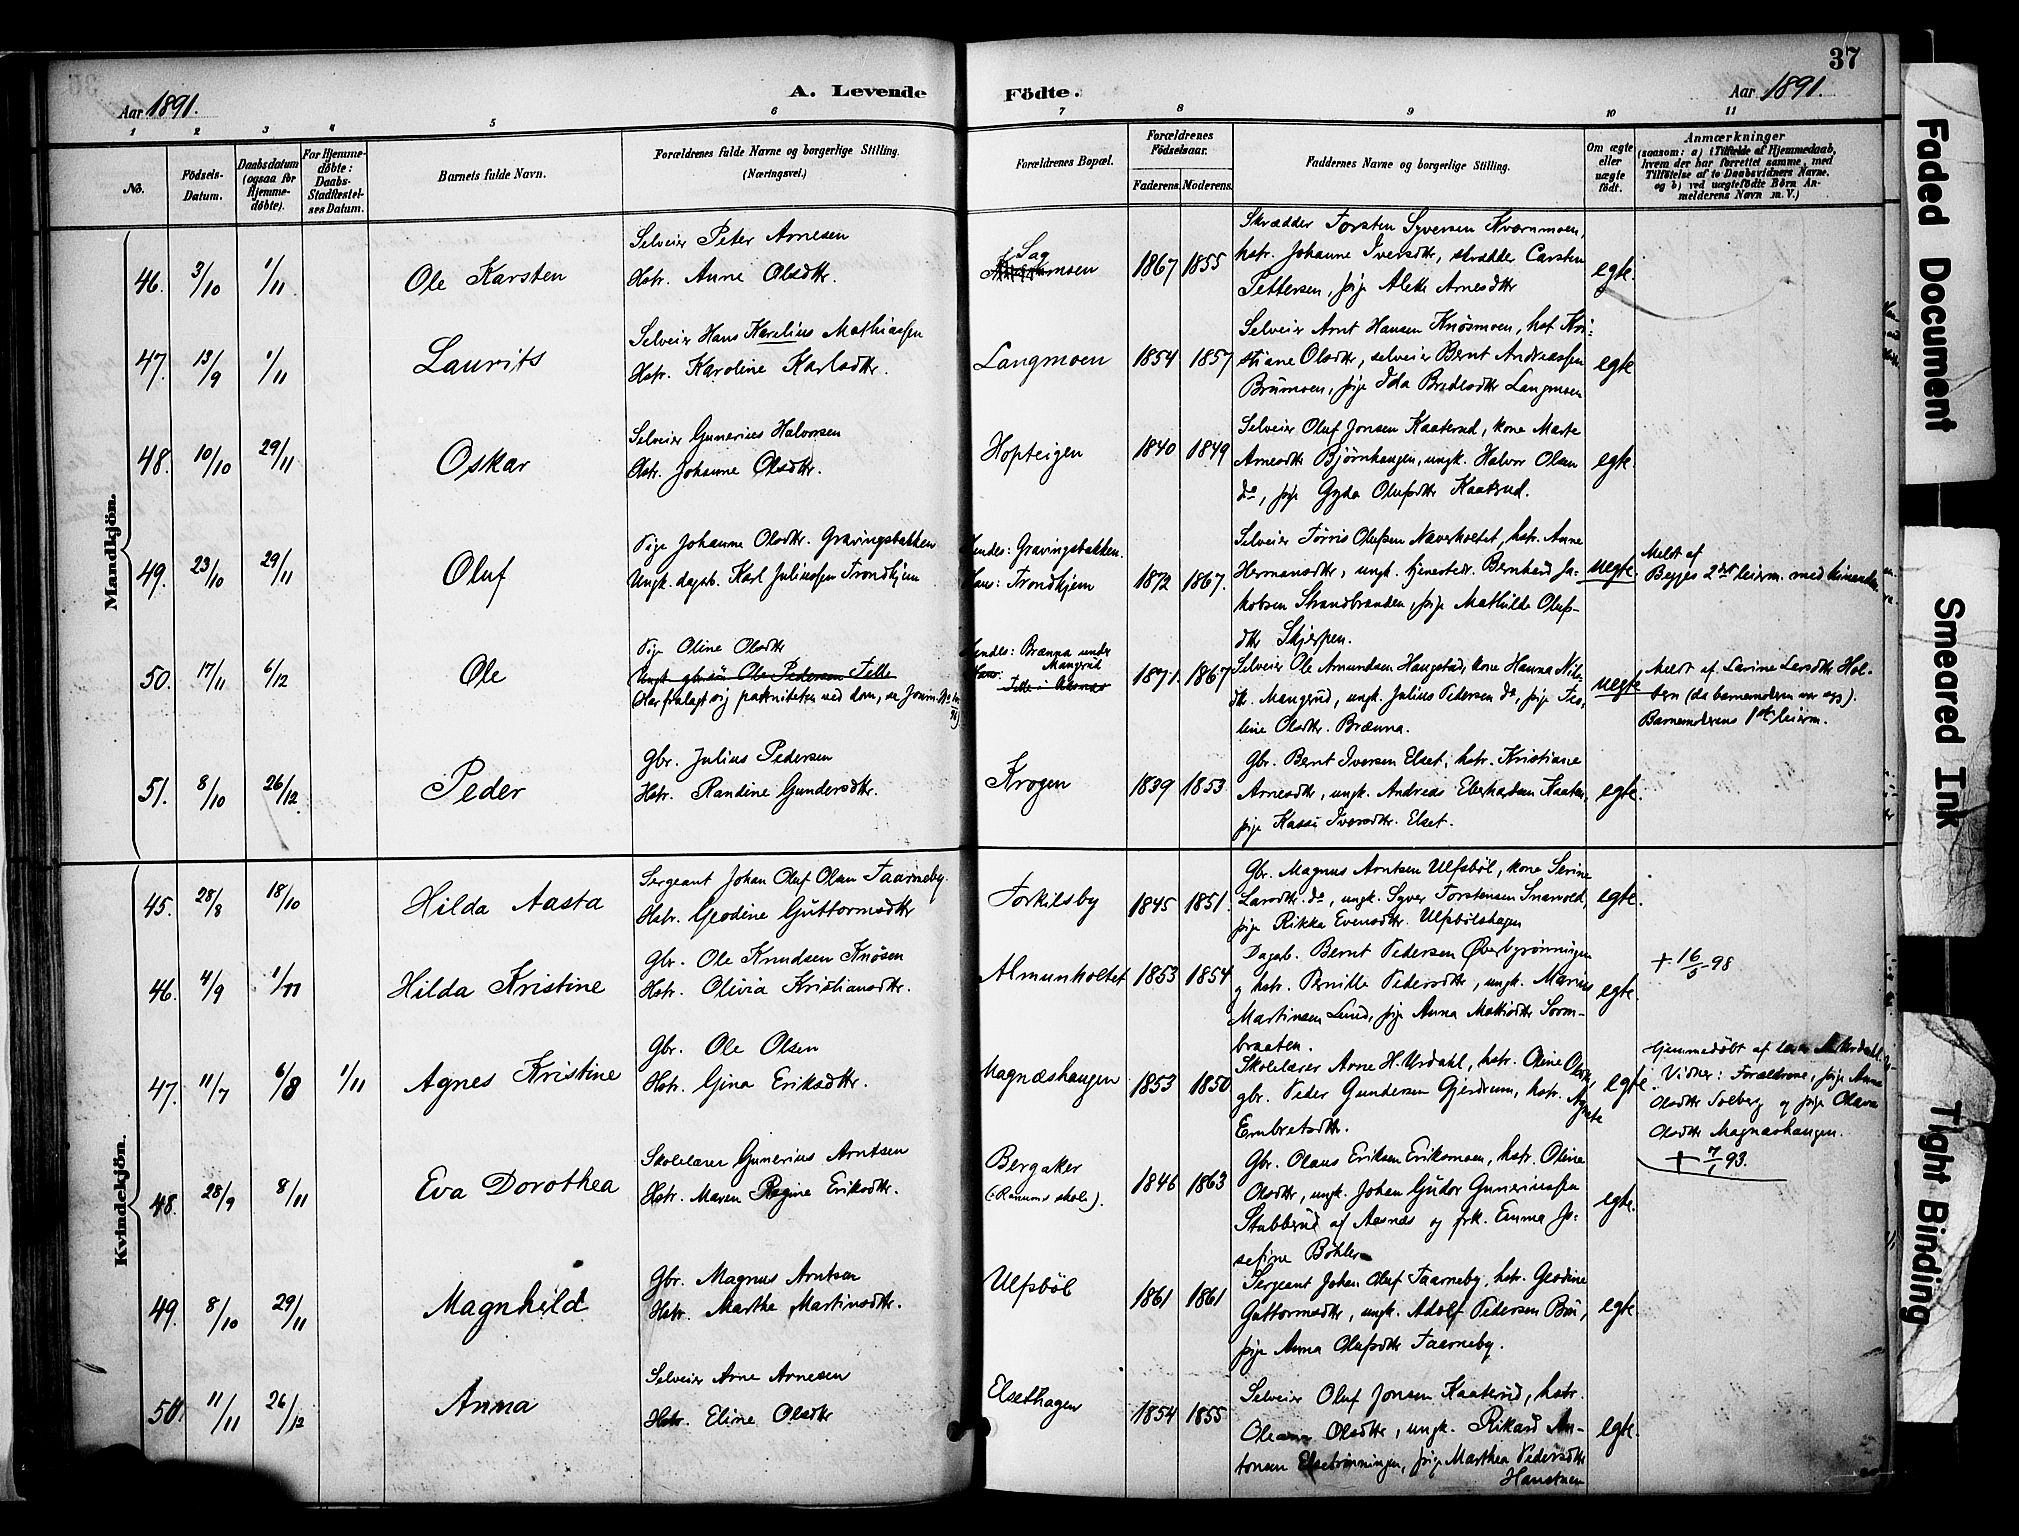 37
Aar 1891.
A. Levende Födte.
Aar 1891.
1 2 3 4 5 6 7 8 9 10 11
No.
Födsels-Datum.
Daabsdatum (ogsaa for Hjemme-döbte).
For Hjemme-döbte: Daabs-Stadfæstel-ses Datum.
Barnets fulde Navn.
Forældrenes fulde Navne og borgerlige Stilling. (Næringsvei.)
Forældrenes Bopæl.
Forældrenes Födselsaar.
Faderens. Moderens.
Faddernes Navne og borgerlige Stilling.
Om ægte eller uægte födt.
Anmærkninger
(saasom: a) i Tilfælde af Hjemmedaab,
hvem der har forrettet samme, med
Tilföielse af to Daabsvidners Navne,
og b) ved uægtefödte Börn An-
melderens Navn m. V.)
Mandkjön.
46. 3/10 1/11 Ole Karsten
Selveier Peter Arnesen
Hstr. Anne Olsdtr.
Sag
1867 1855
Skrædder Torsten Syversen Kvernmoen,
hstr. Johanne Iversdtr, skrædder Carsten
Pettersen, pige Alette Arnesdtr
egte.
47. 13/9 1/11 Laurits
Selveier Hans Karelius Mathiassen
Hstr. Karoline Karlsdtr.
Langmoen 1854 1857
Selveier Arnt Hansen Knösmoen, hst. Kri-
stiane Olsdtr, selveier Bernt Andreassen
Brumoen, pige Ida Bredesdtr Langmoen
egte.
48. 10/10 29/11 Oskar
Selveier Gunerius Halvorsen
Hstr. Johanne Olsdtr.
Hopteigen 1840 1849
Selveier Oluf Jonsen Kaaterud, kone Marte
Arnesdtr Bjørnhaugen, ungk. Halvor Olsen
do, pige Gyda Olufsdtr Kaaterud.
egte.
49. 23/10 29/11 Oluf
Pige Johanne Olsdtr. Gravingsbakken
Ungk. dagsb. Karl Juliussen Trondhjem
Hendes: Gravingsbakken.
Hans: Trondhjem
1872 1867.
Selveier Tørris Olufsen Næverholtet, hstr. Anne
Hermansdtr, ungk. tjenestedr. Bernhard Ja-
kobsen Strandbraaden, pige Mathilde Olufs-
dtr Skjerpen.
uegte.
Meldt af
Begges 2det leierm. med hinanden
50. 17/11 6/12 Ole
Pige Oline Olsdtr
Ungk. gbr.søn Ole Pedersen Felle
Har fralagt sig paterniteten ved dom, se Journ. No
Hendes: Brænna under
Mangrud
Hans: Felle i Aasnæs
1871. 1867
Selveier Ole Amundsen Haugstad, kone Hanna Nils-
dtr. Mangrud, ungk. Julius Pedersen do, pige Teo-
line Olsdtr. Brænna.
uegte
Meldt af Larine Larsdtr Hol-
ten (da barnemoderen var syg).
Barnemoderens 1ste leierm.
51. 8/10 26/12 Peder
Gbr. Julius Pedersen
Hstr. Randine Gundersdtr.
Krogen 1839 1853
Gbr. Bernt Iversen Elset, hstr. Kristiane
Arnesdtr, ungk. Andreas Eberhardsen Kaaten,
pige Kasse Iversdtr. Elset.
egte.
Kvindekjön.
45. 28/8 18/10 Hilda Aasta
Sergeant Johan Oluf Olsen Taarneby.
Hstr. Geodine Guttormsdtr
Torkilsby 1845 1851.
Gbr. Magnus Arntsen Ulfsböl, kone Serine
Larsdtr. do, ungk. Syver Torstensen Snarvold,
pige Rikka Evensdtr. Ulfsbölshagen
egte.
46. 4/9 1/11 Hilda Kristine
Gbr. Ole Knudsen Knösen
Hstr. Olivia Kristiansdtr.
Almunholtet 1853 1854
Dagsb. Bernt Pedersen Øverbyrönningen
og hstr. Pernille Pedersdtr, ungk. Marius
Martinsen Lund, pige Anna Mathisdtr Sorm-
braaten.
egte.
+ 16/5 98
47. 11/7 6/8 1/11 Agnes Kristine
Gbr. Ole Olsen
Hstr. Gina Eriksdtr.
Magnæshaugen 1853 1850
Skolelærer Arne H. Urdahl, hstr. Oline Olsdtr,
gbr. Peder Gundersen Gjerdrum, hstr. Agnete
Embretsdtr.
egte
Hjemmedöbt af A. Urdahl.
Vidner: Forældrene, pige Anna
Olsdtr Solberg og pige Olava
Olsdtr Magnæshaugen.
+ 7/1 93.
48. 28/9 8/11 Eva Dorothea
Skolelærer Gunerius Arntsen
Hstr. Maren Regine Eriksdtr.
Bergaker
(Ranums skole).
1846 1863
Gbr. Olaus Eriksen Eriksmoen, hstr. Oline
Olsdtr, ungk. Johan Gudor Guneriussen
Stubberud af Aasnæs og frk. Emma Jo-
sefine Böhler
egte.
49. 8/10 29/11 Magnhild
Gbr. Magnus Arntsen
Hstr. Marthe Martinsdtr.
Ulfsböl 1861 1861
Sergeant Johan Oluf Taarneby, hstr. Geodine
Guttormsdtr, ungk. Adolf Pedersen Bru,
pige Anna Olufsdtr Taarneby.
egte
50. 11/11 26/12 Anna
Selveier Arne Arnesen
Hstr. Eline Olsdtr
Elsethagen 1854 1855
Selveier Oluf Jonsen Kaaterud, hstr.
Oleanna Olsdtr, ungk. Rikard An-
tonsen Elsetrönningen, pige Marthea Pedersdtr
Hanstuen
egte.
Faded Document
Smeared Ink
Tight Binding